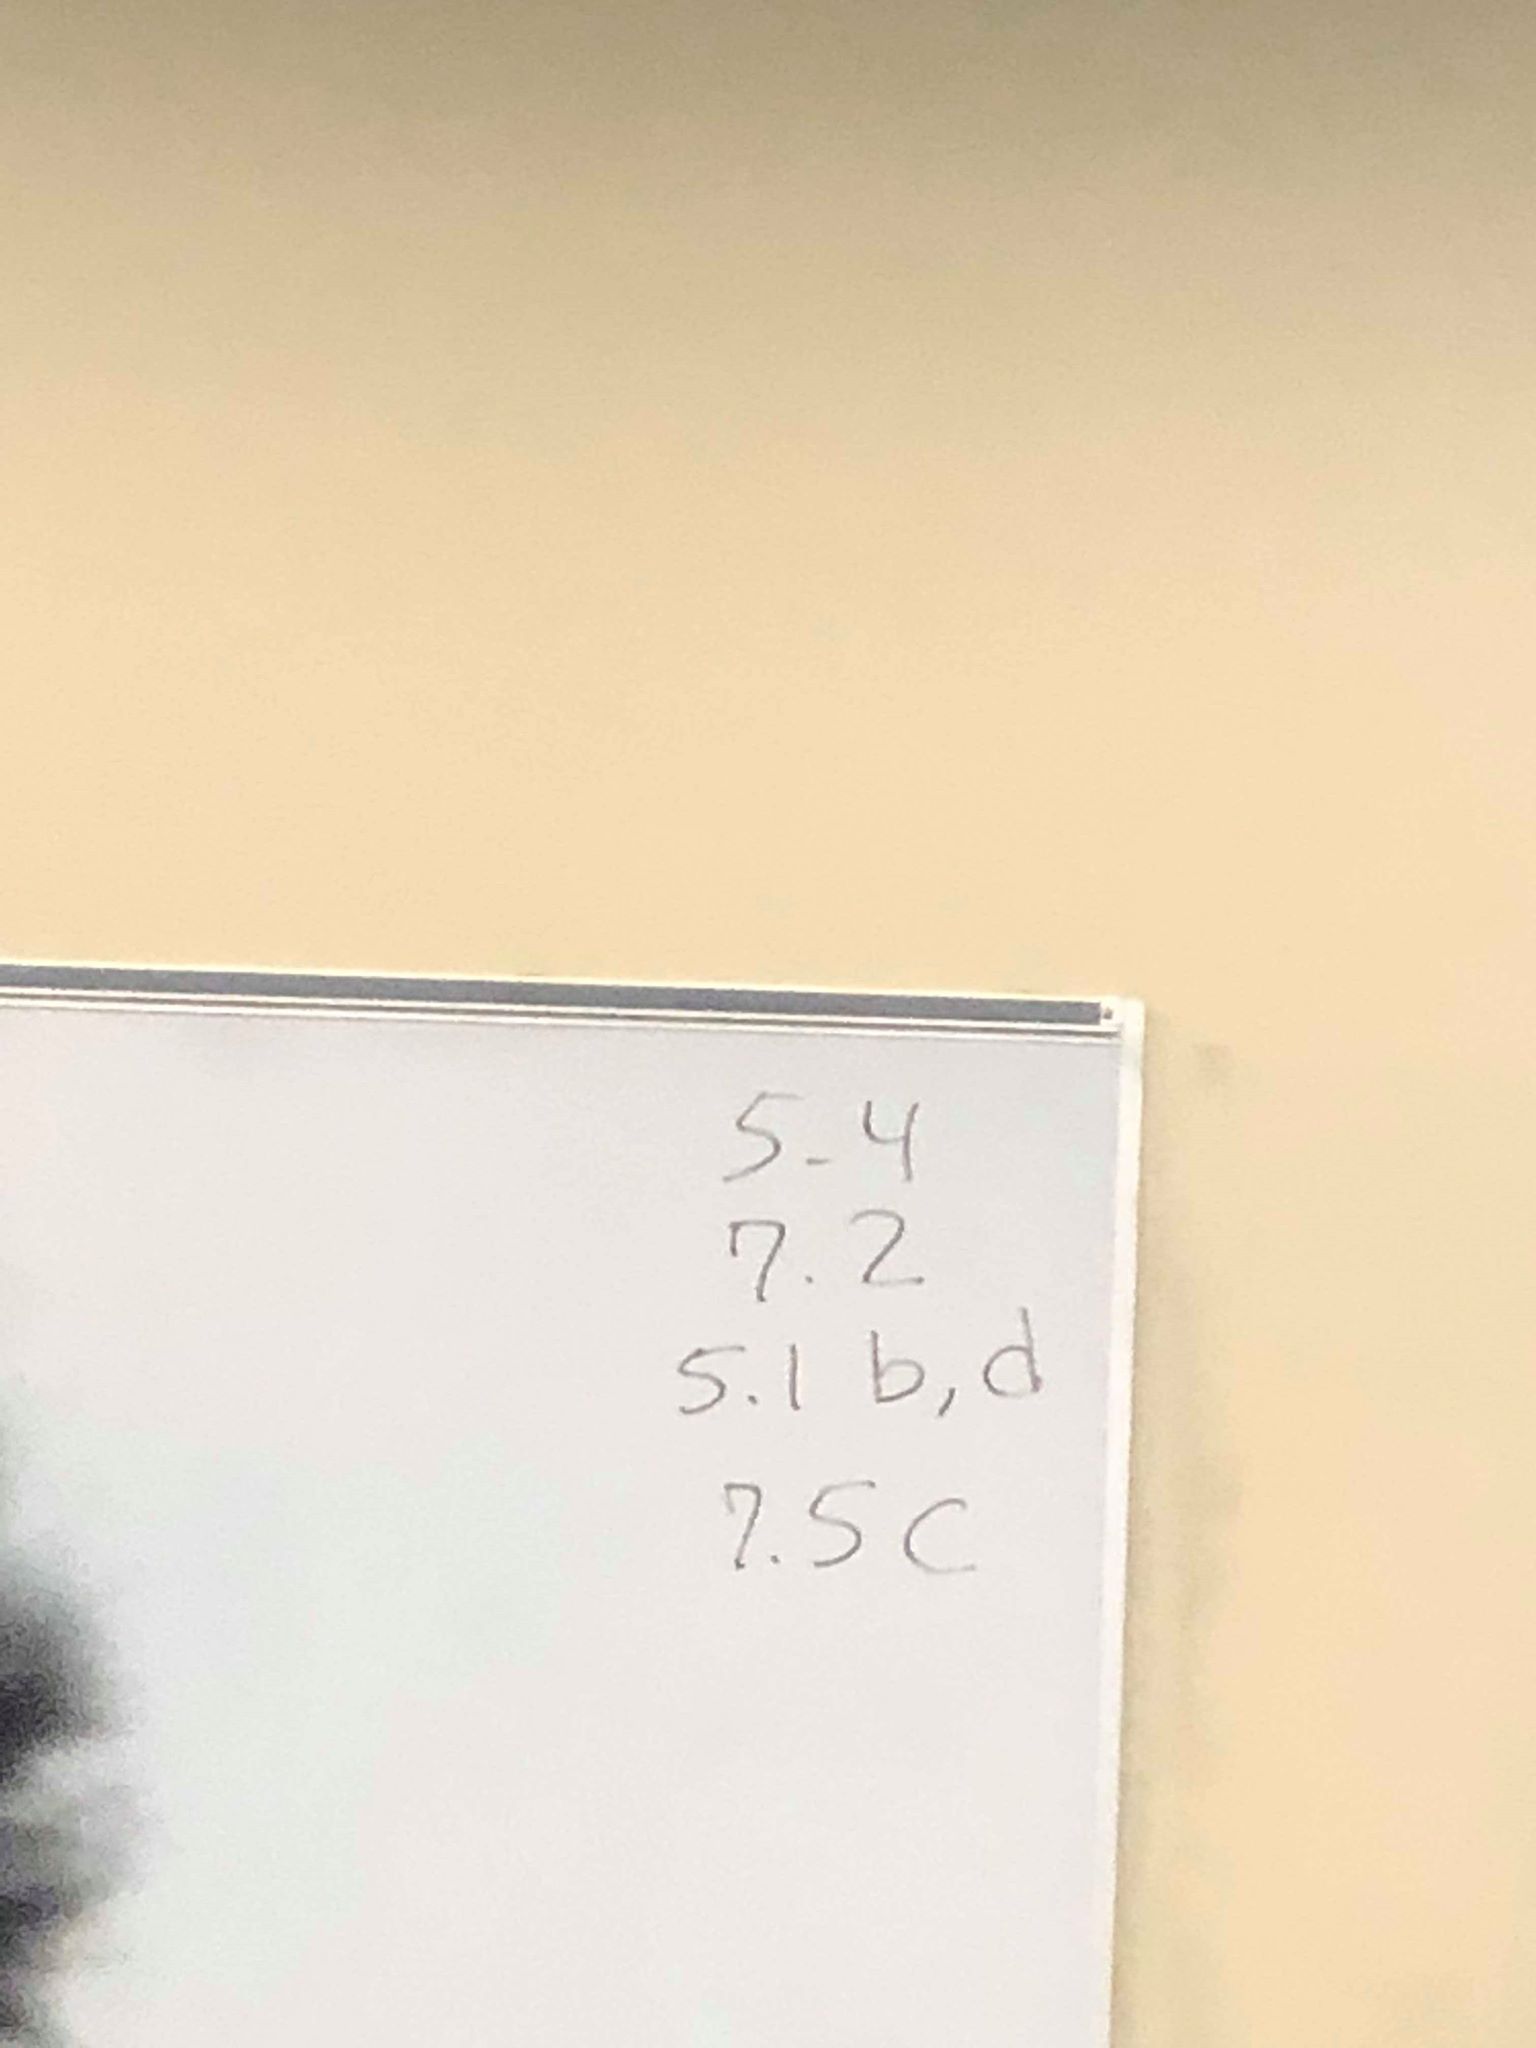 5-4
7.2
5.1 b,d
7.5 c